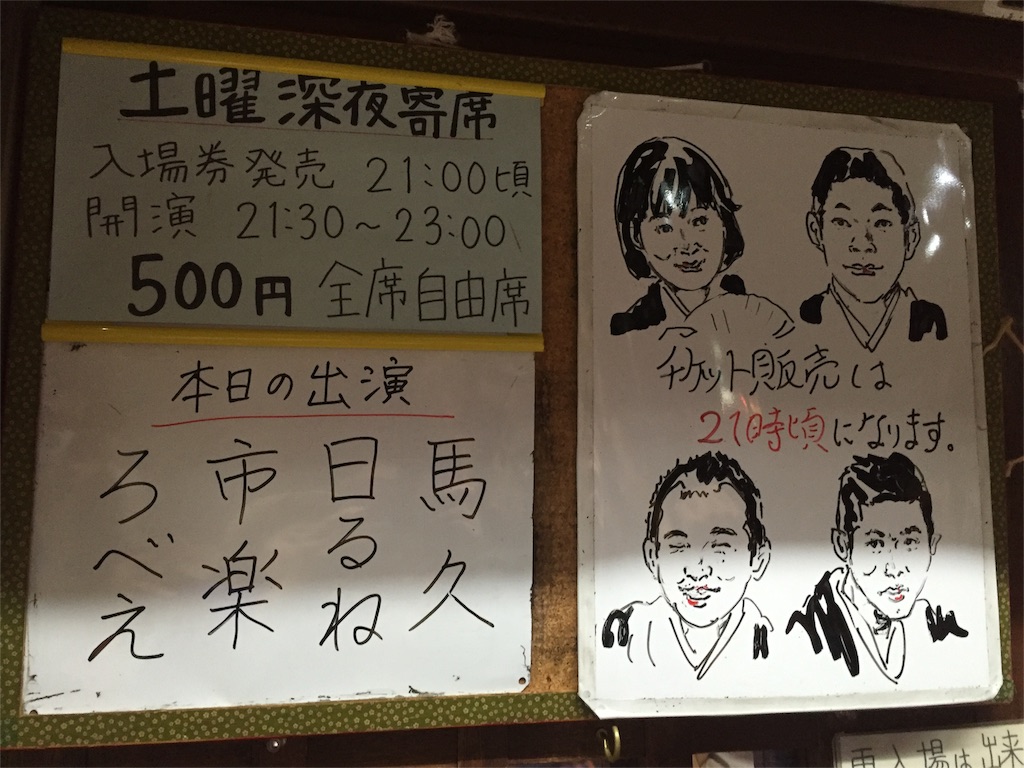 土曜深夜寄席
入場券発売 21:00頃
開演 21:30～23:00
500円 全席自由席
本日の出演
馬久
日るね
市楽
ろべえ
チケット販売は
21時頃になります。
再入場は出来